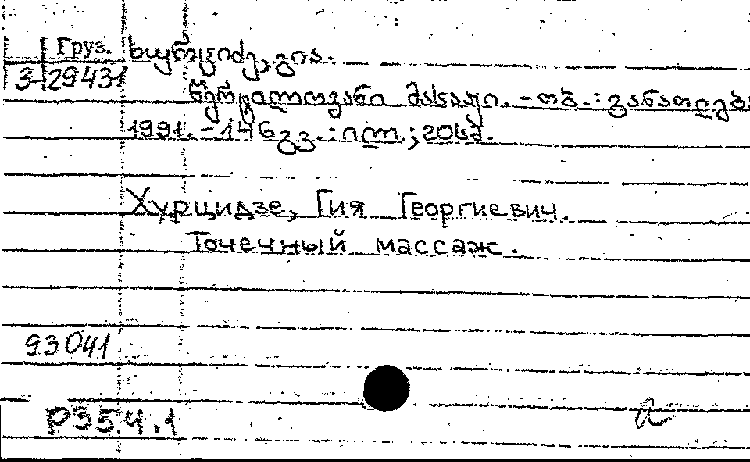 Груз. ხურციძე, გია.
3-29431
წერტილოვანი მასაჟი. -თბ.: განათლება
1991. -146გვ.: ილ.; 20სმ.
Хурцидзе, Гия Георгиевич.
Точечный массаж.
93041
Р354.1